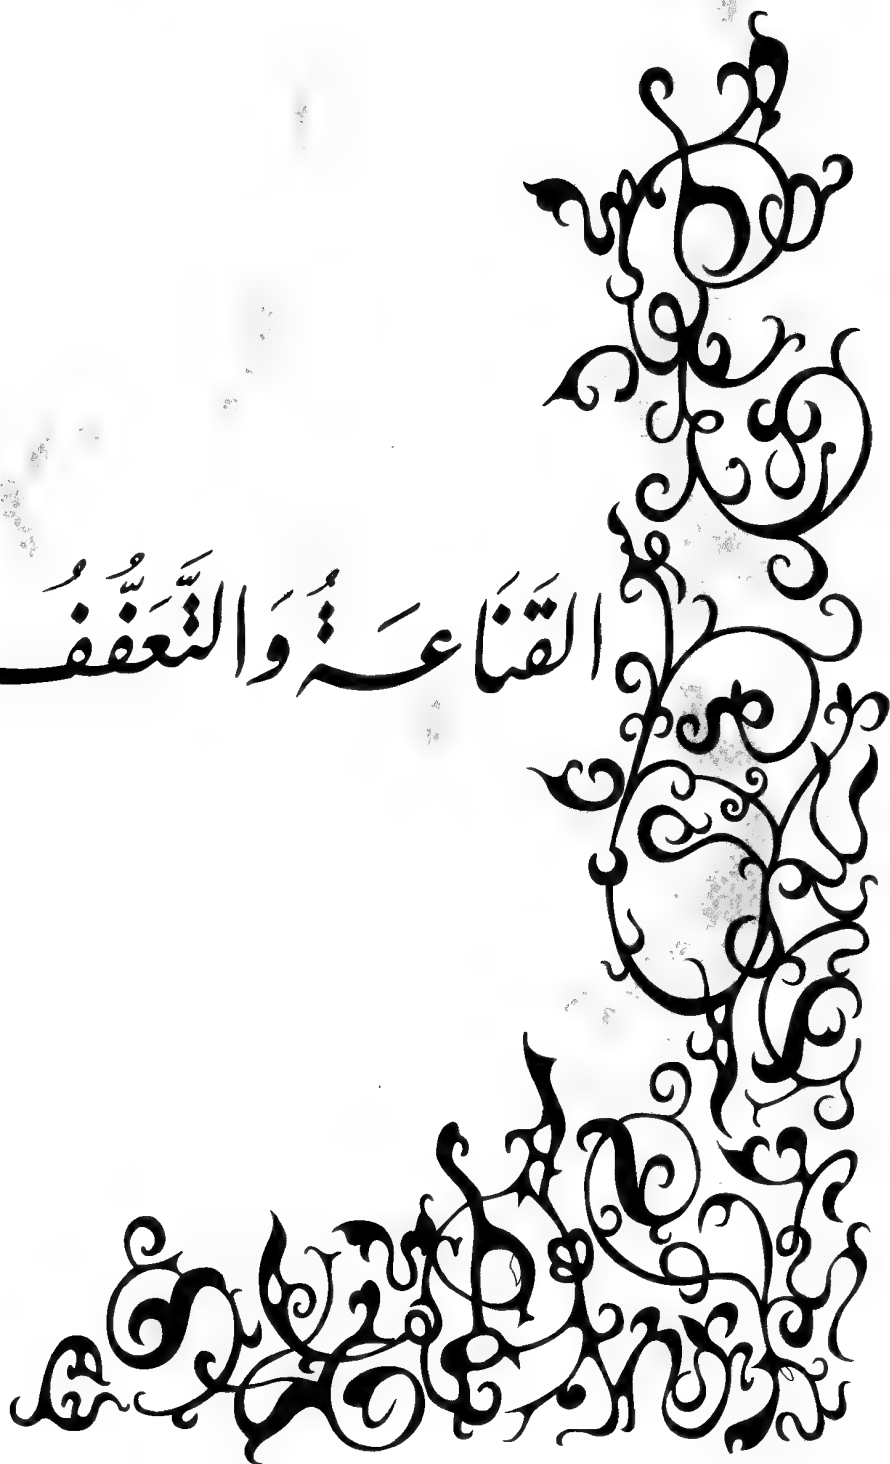 القَنَاعَةُ وَالتَّعَفُّفُ